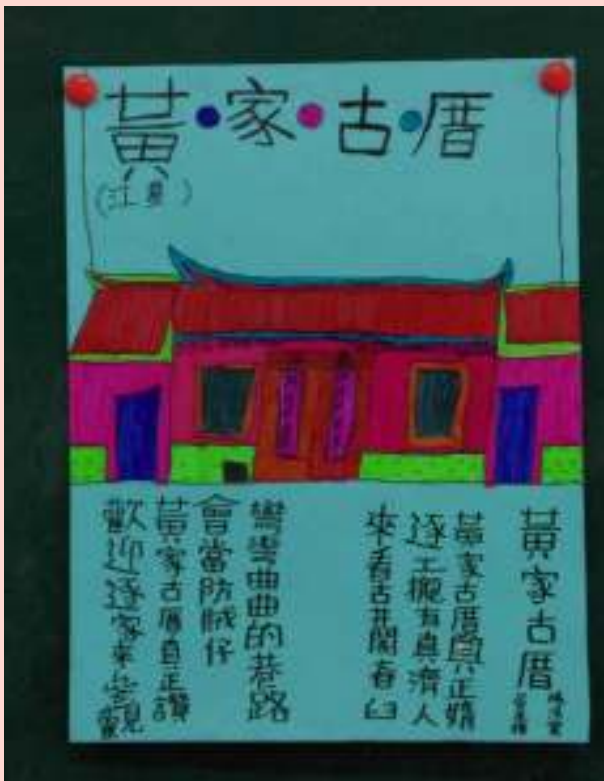 黃•家•古•厝
(江夏)
黃家古厝
黃家古厝真正媠
逐工攏有真濟人
來看古井閣舂臼
彎彎曲曲的巷路
會當防賊仔
黃家古厝真正讚
歡迎逐家來參觀